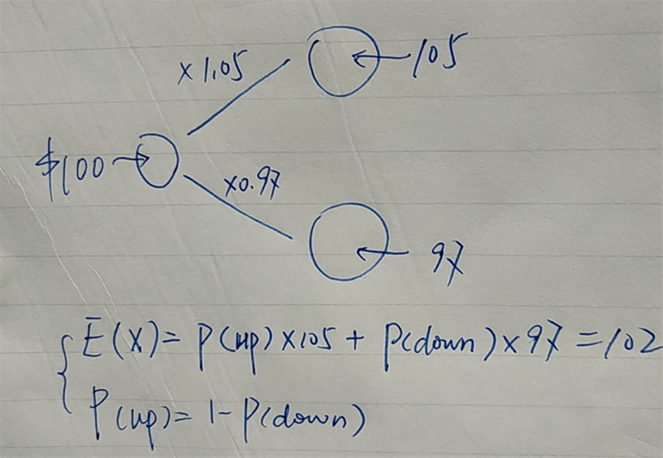 ×1.05
105
$100
×0.97
97
E(X)= P(up)×105 + P(down)×97 =102
P(up)= 1-P(down)